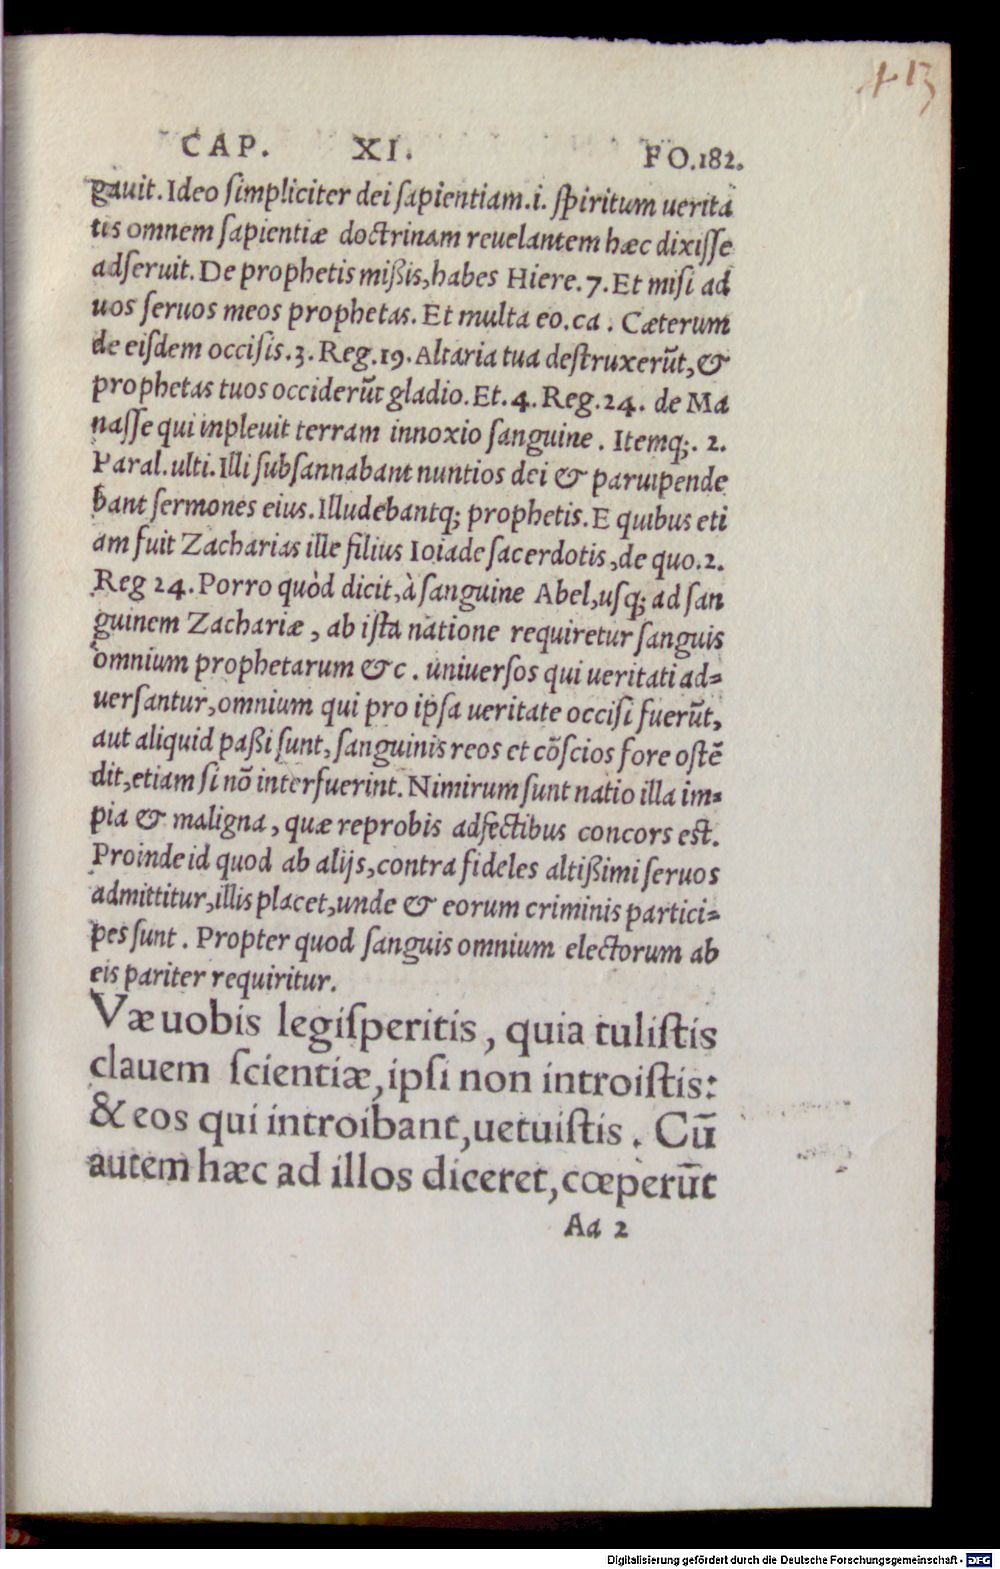 413
CAP. XI. FO.182.
gauit. Ideo ſimpliciter dei ſapientiam.i. ſpiritum uerita
tis omnem ſapientiæ doctrinam reuelantem hæc dixiſſe
adſeruit. De prophetis mißis, habes Hiere. 7. Et miſi ad
uos ſeruos meos prophetas. Et multa eo. ca. Cæterum
de eiſdem occiſis. 3. Reg. 19. Altaria tua deſtruxerūt, &
prophetas tuos occiderūt gladio. Et. 4. Reg. 24. de Ma
naſſe qui inpleuit terram innoxio ſanguine. Itemq;. 2.
Paral. ulti. Illi ſubſannabant nuntios dei & paruipende
bant ſermones eius. Illudebantq; prophetis. E quibus eti
am fuit Zacharias ille filius Ioiade ſacerdotis, de quo. 2.
Reg 24. Porro quòd dicit, à ſanguine Abel, uſq; ad ſan
guinem Zachariæ, ab iſta natione requiretur ſanguis
omnium prophetarum &c. uniuerſos qui ueritati ad-
uerſantur, omnium qui pro ipſa ueritate occiſi fuerūt,
aut aliquid paßi ſunt, ſanguinis reos et cōſcios fore oſtē
dit, etiam ſi nō interfuerint. Nimirum ſunt natio illa im-
pia & maligna, quæ reprobis adfectibus concors est.
Proinde id quod ab alijs, contra fideles altißimi ſeruos
admittitur, illis placet, unde & eorum criminis partici-
pes ſunt. Propter quod ſanguis omnium electorum ab
eis pariter requiritur.
Væ uobis legiſperitis, quia tuliſtis
clauem ſcientiæ, ipſi non introiſtis:
& eos qui introibant, uetuiſtis. Cū
autem hæc ad illos diceret, cœperūt
Aa 2
Digitalisierung gefördert durch die Deutsche Forschungsgemeinschaft - DFG